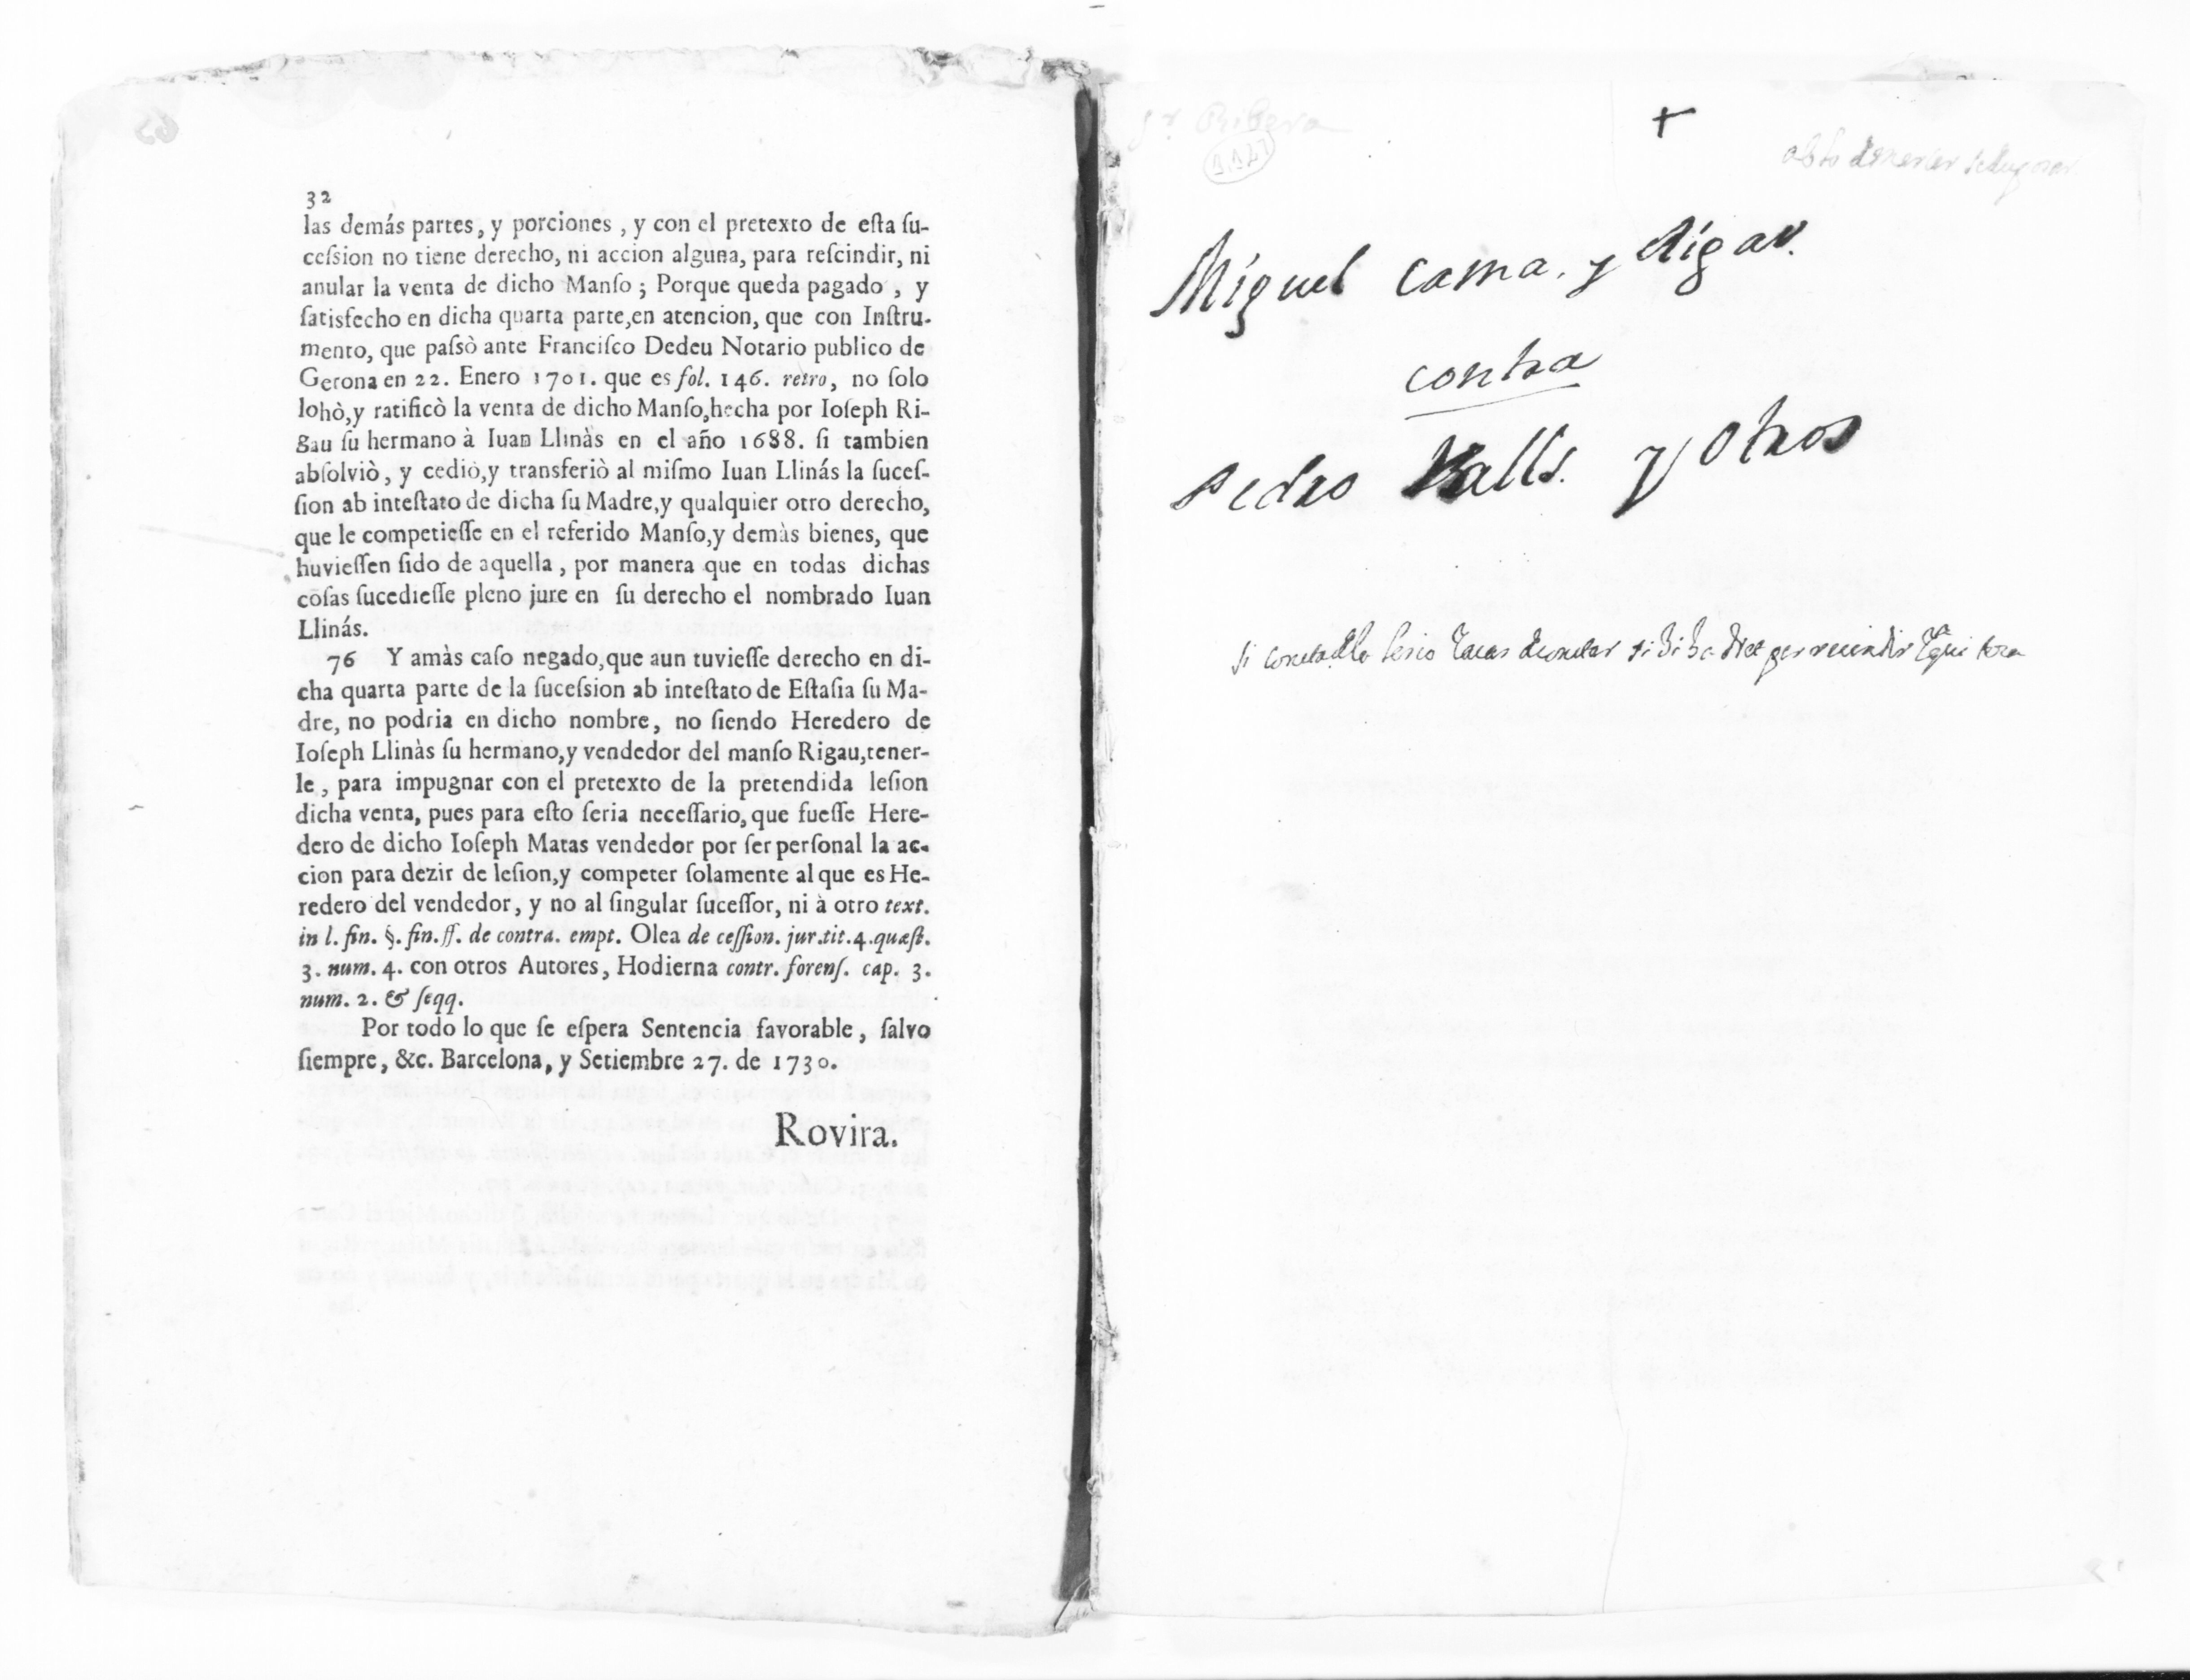 32
las demás partes, y porciones, y con el pretexto de eſta ſu-
ceſsion no tiene derecho, ni accion alguna, para reſcindir, ni
anular la venta de dicho Manſo; Porque queda pagado, y
ſatisfecho en dicha quarta parte,en atencion, que con Inſtru-
mento, que paſsò ante Franciſco Dedeu Notario publico de
Gerona en 22. Enero 1701. que es fol. 146. retro, no ſolo
lohò,y ratificò la venta de dicho Manſo,hecha por Ioſeph Ri-
gau ſu hermano à Iuan Llinàs en el año 1688. ſi tambien
abſolviò, y cediò,y transferiò al miſmo Iuan Llinás la ſuceſ-
ſion ab inteſtato de dicha ſu Madre,y qualquier otro derecho,
que le competieſſe en el referido Manſo,y demàs bienes, que
huvieſſen ſido de aquella, por manera que en todas dichas
coſas ſucedieſſe pleno jure en ſu derecho el nombrado Iuan
Llinás.
76 Y amàs caſo negado,que aun tuvieſſe derecho en di-
cha quarta parte de la ſuceſsion ab inteſtato de Eſtaſia ſu Ma-
dre, no podria en dicho nombre, no ſiendo Heredero de
Ioſeph Llinàs ſu hermano,y vendedor del manſo Rigau,tener-
le, para impugnar con el pretexto de la pretendida leſion
dicha venta, pues para eſto ſeria neceſſario,que fueſſe Here-
dero de dicho Ioſeph Matas vendedor por ſer perſonal la ac-
cion para dezir de leſion,y competer ſolamente al que es He-
redero del vendedor, y no al ſingular ſuceſſor, ni à otro text.
in l. fin. §. fin. ff. de contra. empt. Olea de ceſſion. jur.tit.4.quæſt.
3. num. 4. con otros Autores, Hodierna contr. forenſ. cap. 3.
num. 2. & ſeqq.
Por todo lo que ſe eſpera Sentencia favorable, ſalvo
ſiempre, &c. Barcelona, y Setiembre 27. de 1730.
Rovira.
Sr. Ribera
1.127
Miguel Cama. y Rigau.
contra
Pedro Valls. y Otros